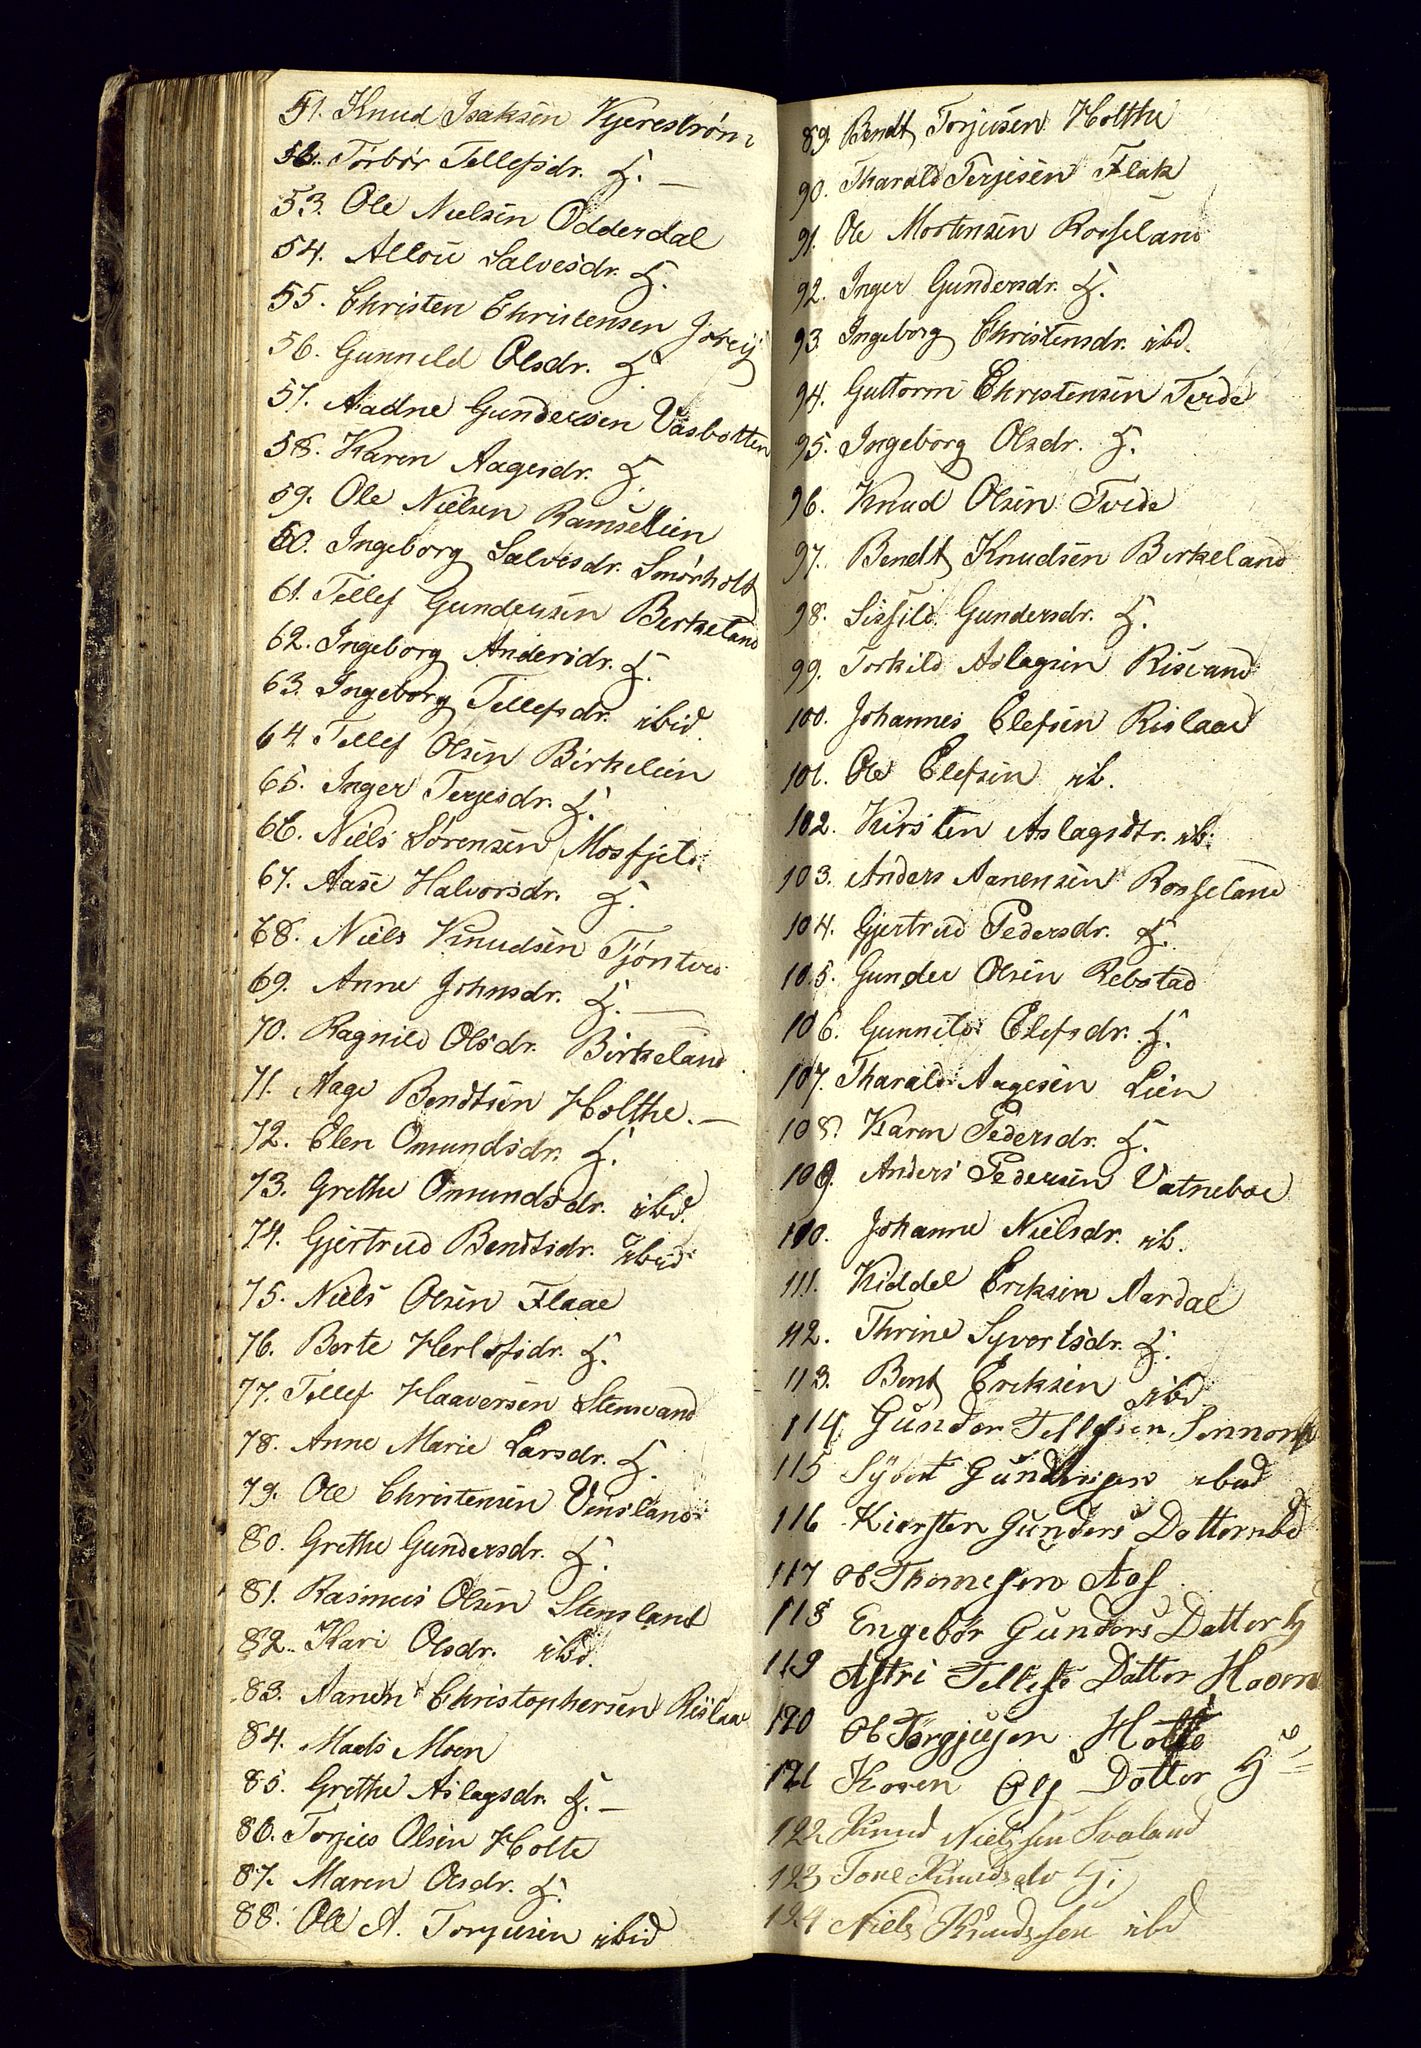 51. Knud Isaksen Kjerestrøm
52. Torbør Tellefsdr. H. —
53. Ole Nielsen Odderdal
54. Allou Salvesdr. H.
55. Christen Christensen
56. Gunnild Olsdr. H.
57. Aadne Gundersen Vasbotten
58. Karen Aagesdr. H.
59. Ole Nielsen Ramselien
60. Ingeborg Salvesdr. Smørholt
61. Tellef Gundersen Birkeland
62. Ingeborg Andersdr. H.
63. Ingeborg Tellefsdr. ibid.
64. Tellef Olsen Birkelien
65. Inger Terjesdr. H.
66. Niels Sørensen Mosfjeld
67. Aase Halvorsdr. H.
68. Niels Knudsen Tjøntved
69. Anne Johnsdr. H. —
70. Ragnild Olsdr. Birkeland
71. Aage Bendtsen Holthe. —
72. Elen Omundsdr. H.
73. Grethe Omundsdr. ibd.
74. Gjertrud Bendtsdr. ibid.
75. Niels Olsen Flaae
76. Berte Herlofsdr. H.
77. Tellef Haaversen Stenvand
78. Anne Marie Larsdr. H.
79. Ole Christensen Vensland
80. Grethe Gundersdr. H.
81. Rasmus Olsen Stensland
82. Kari Olsdr. ibd.
83. Aanen Christophersen Rislaa
84. Mads Moen
85. Grethe Aslagsdr. H. —
86. Torjus Olsen Holte
87. Maren Olsdr. H.
88. Ole A. Torjusen ibid
89. Bendt Torjusen Holthe
90. Tharald Terjesen Flak
91. Ole Mortensen Rosseland
92. Inger Gundersdr. H.
93. Ingeborg Christensdr. ibd.
94. Guttorm Christensen Tvede
95. Ingeborg Olsdr. H.
96. Knud Olsen Tvede
97. Bendt Knudsen Birkeland
98. Sissild Gundersdr. H.
99. Torkild Aslagsen Risvand
100. Johannes Elefsen Rislaae
101. Ole Elefsen ib.
102. Kirsten Aslagsdtr. ib.
103. Anders Aanensen Rosseland
104. Gjertrud Pedersdr. H.
105. Gunder Olsen Rebstad
106. Gunnild Elefsdr. H.
107. Tharald Aagesen Lien
108. Karen Pedersdr. H.
109. Anders Pedersen Vatneboe
110. Johanne Nielsdr. ib.
111. Kiddel Eriksen Aardal
112. Thrine Syvertsdr. H.
113. Bent Eriksen ibd
114 Gunder Tellefsen Sennom
115 Syvert Gundersen ibid
116 Kiersten Gunders Dotter ibd
117 Ole Thomesen Aas
118 Engebør Gunders Datter H
119 Astri Tellefs Datter Haven
120 Ole Torgjusen Holte
121 Karen Ols Datter H
122 Knud Nielssen Svaland
123 Tone Knudsdr H.
124 Niels Knudssen ibd